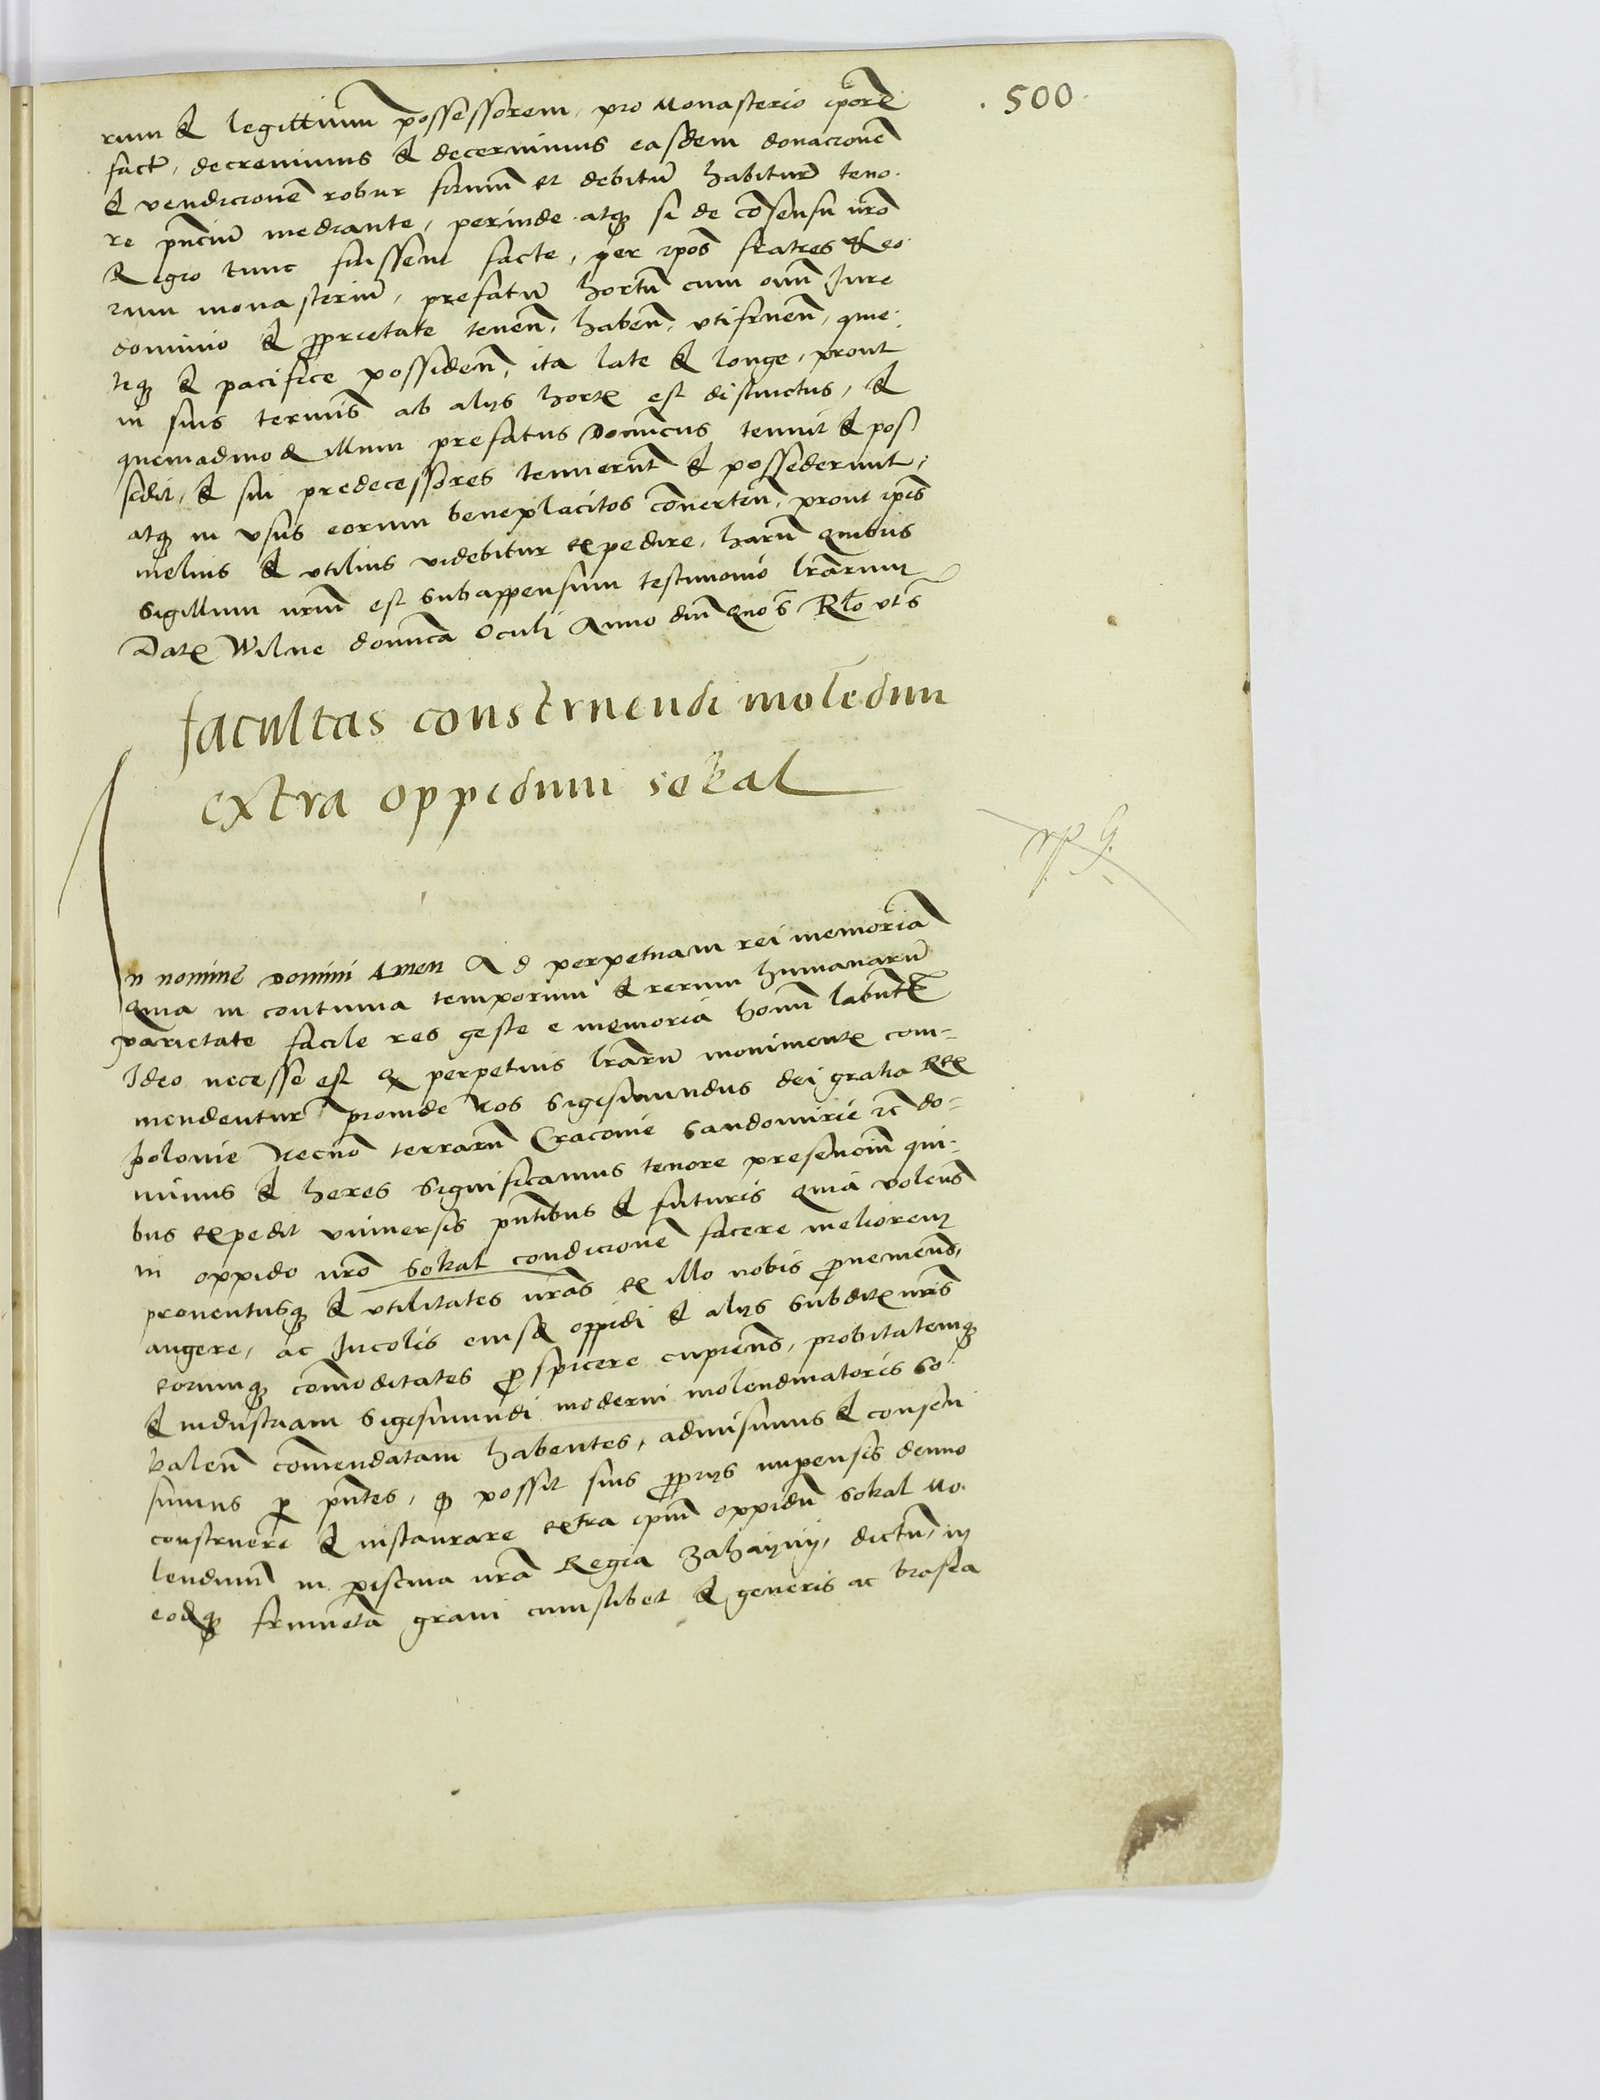 500
rum & legittimũ possessorem, pro Monasterio ipõrũ
fact, decrevimus & decernimus easdem donacionẽ
& vendicionẽ robur firmũ et debitũ habiturã teno
re pñciũ mediante, perinde atq3 si de cõsensu nrõ
Regio tunc fuissent facte, per ipõs fratres & eo
rum monasteriũ, prefatũ hortũ cum omĩ Jure
dominio & pprietate tenenđ, habenđ, utifruenđ, quie
teq3 & pacifice possidenđ, ita late & longe, prout
in suis terminis ab alijs hortis est distinctus, &
quemadmodũ illum prefatus Dominicus tenuit & pos
sedit, & sui predecessores tenuerũt & possederunt,
atq3 in usus eorum beneplacitos cõvertenđ, prout ipĩs
melius & utilius videbitur expedire, harũ quibus
Sigillum nrũm est subappensum testimonio lrãrum
Datũ Wilne domĩca Oculi Anno dnĩ quo s Rlo ut s
facultas construendi molẽdini
extra oppidum sokal
In nomine Domini Amen Ad perpetuam rei memoriã
Quia in continua temporum & rerum humanarũ
varietate facile res geste e memoria homĩ labuntur
Ideo necesse est ut perpetuis lrãrũ monimentis com-
mendentur proinde Nos Sigismundus dei gratia Rex
polonie Necnõ terrarũ Cracovie Sandomirie ec do-
minus & heres Significamus tenore presenciũ qui-
bus expedit universis pñtibus & futuris quia volens
in oppido nrõ Sokal condicionẽ facere meliorem
proventusq3 & utilitates nrãs ex illo nobis pvenienđ,
augere, ac Incolis eiusđ oppidi & alijs subditis nrĩs
eorumq3 cõmoditates pspicere cupiens, probitatemq3
& industriam Sigismundi moderni molendinatoris So
kalenñ cõmendatam habentes, admisimus & consen
simus p pñtes, q possit suis pprijs impensis denuo
construere & instaurare extra ipm oppidũ Sokal Mo
lendinũ in piscina nrã Regia Zahayny, dictũ, in
eodq3 frumẽta grani cuiuslibet & generis ac brasea